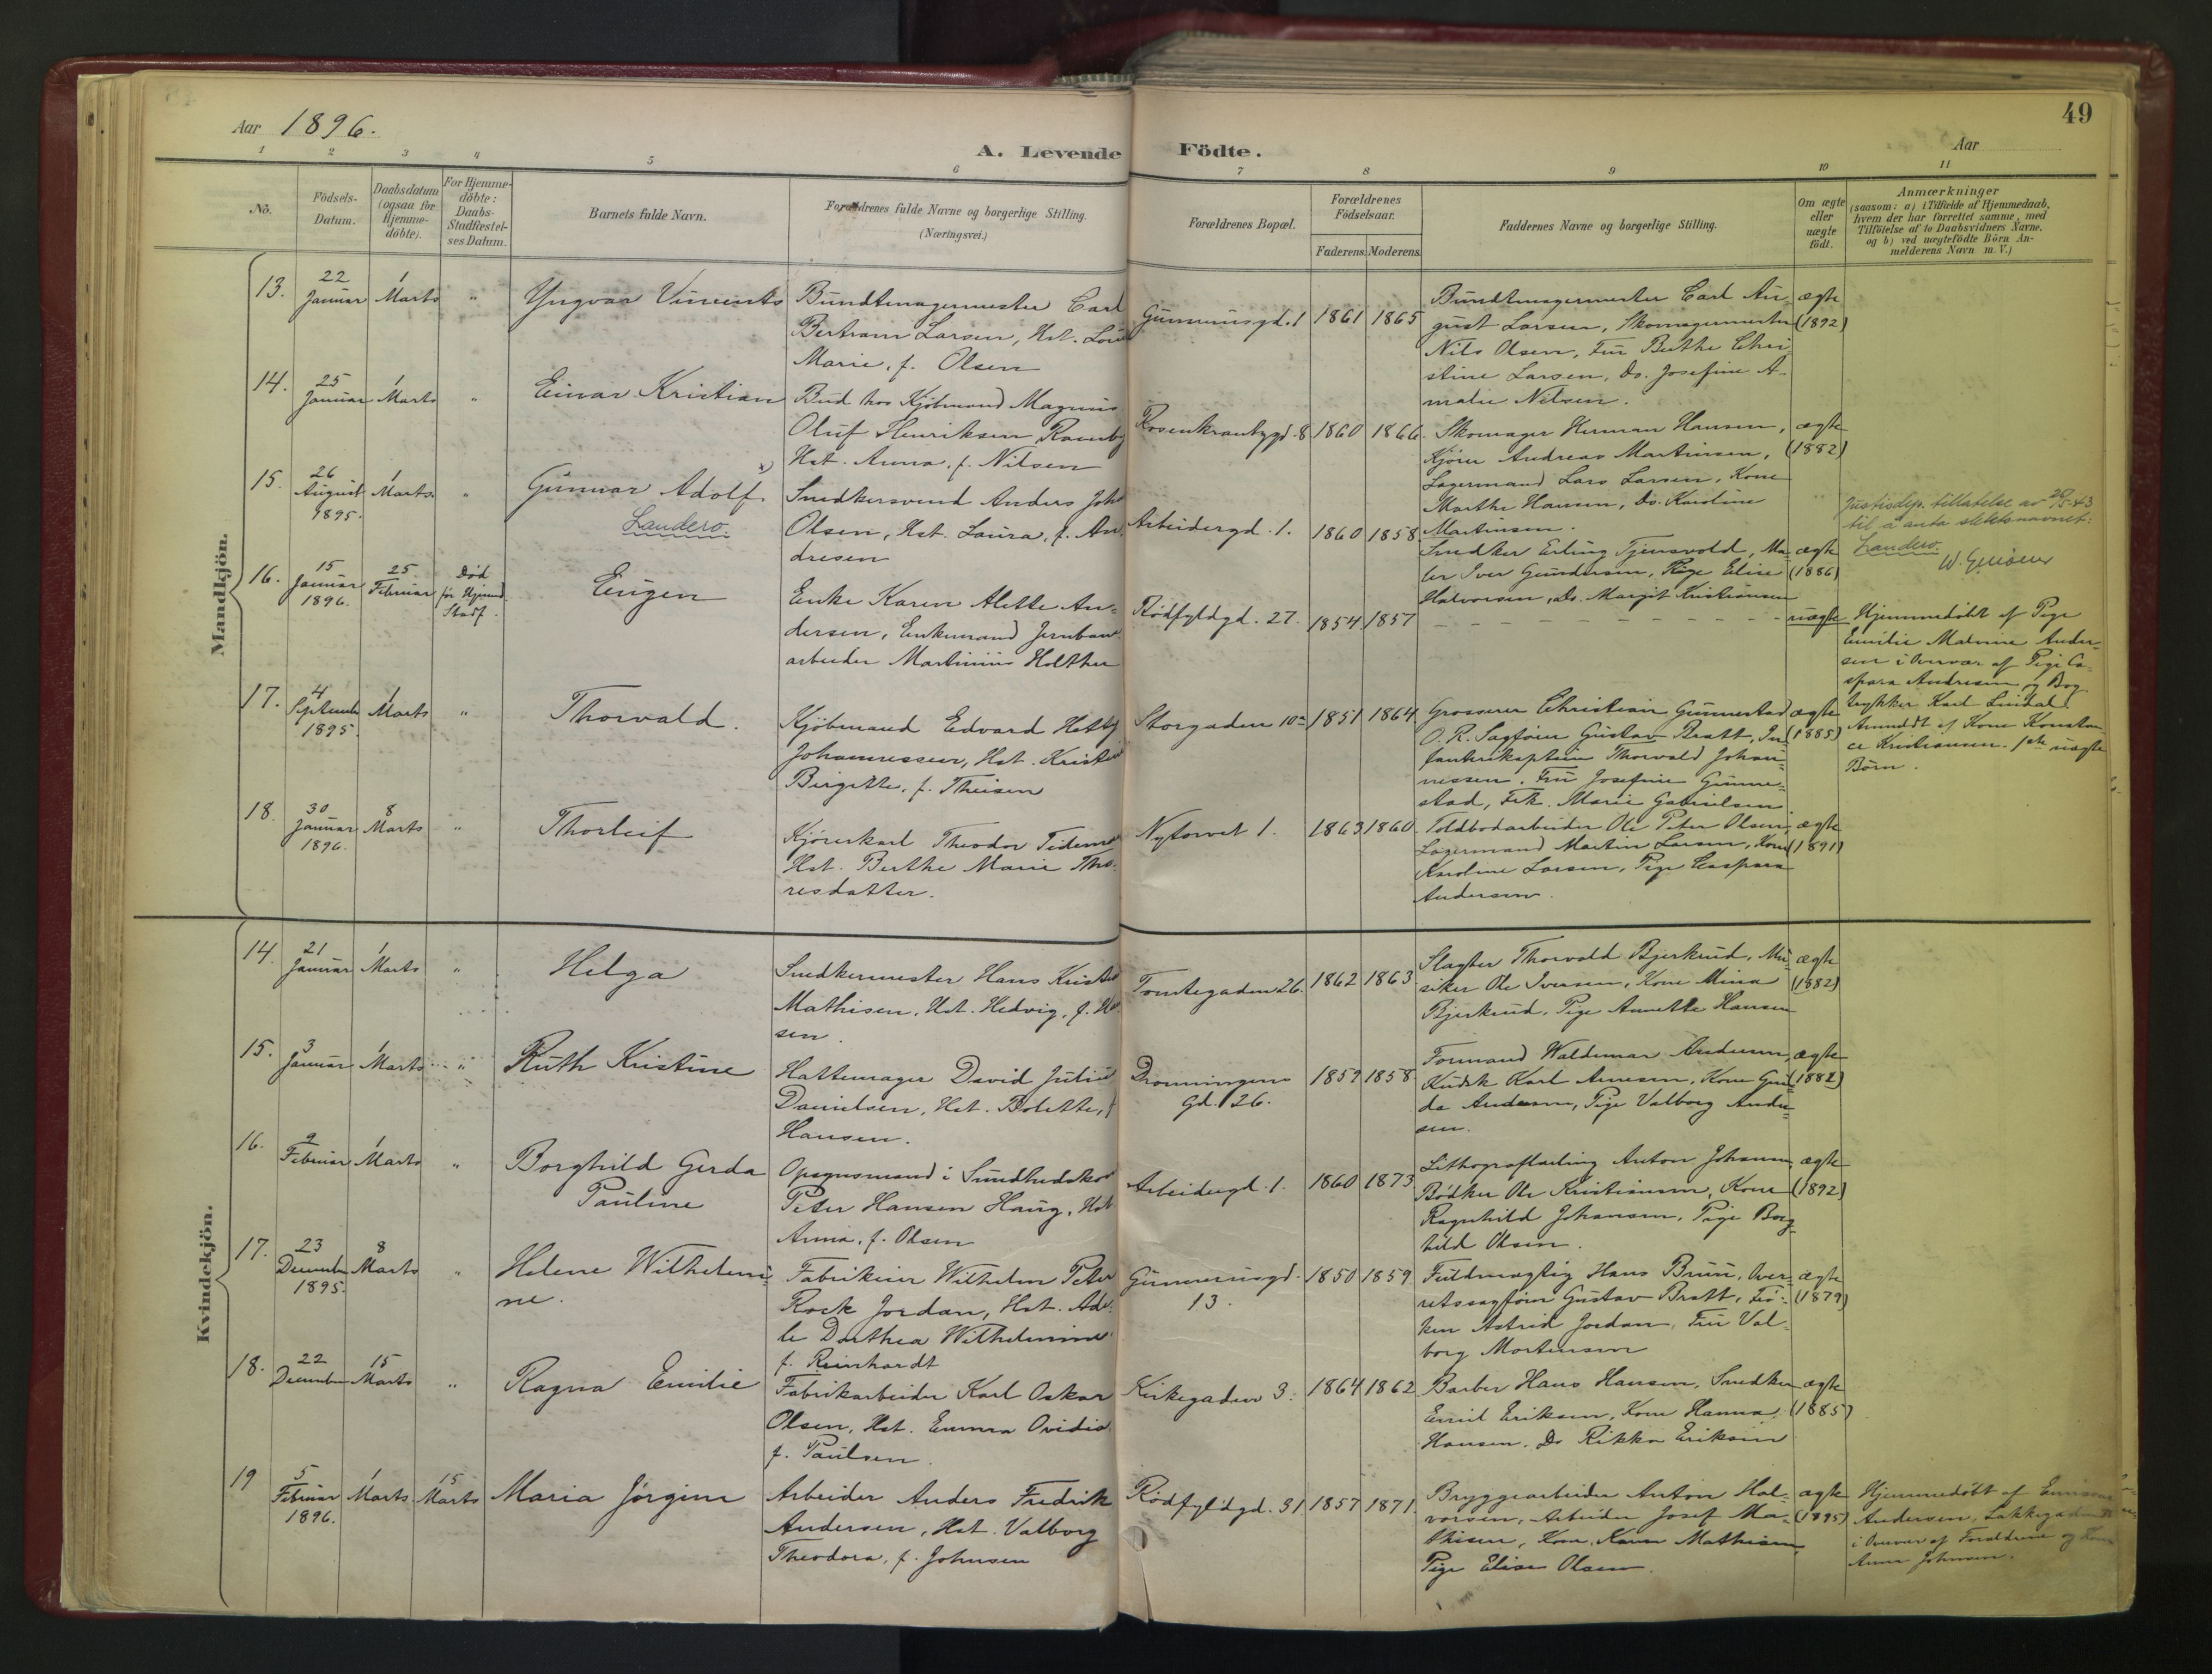 49
Aar 1896.
A. Levende Födte.
Aar
1 2 3 4 5 6 7 8 9 10 11
No.
Födsels-
Datum.
Daabsdatum
(ogsaa for
Hjemme-
döbte).
For Hjemme-
döbte:
Daabs-
Stadfæstel-
ses Datum.
Barnets fulde Navn.
Forældrenes fulde Navne og borgerlige Stilling.
(Næringsvei.)
Forældrenes Bopæl.
Forældrenes
Födselsaar.
Faderens. Moderens.
Faddernes Navne og borgerlige Stilling.
Om ægte
eller
uægte
födt.
Anmærkninger
(saasom: a) i Tilfælde af Hjemmedaab,
hvem der har forrettet samme, med
Tilföielse af to Daabsvidners Navne,
og b) ved uægtefödte Börn An-
melderens Navn m. V.)
Mandkjön.
13.
22
Januar
1
Marts
"
Yngvar Vincents
Bundtmagermester Carl
Bertram Larsen, Hst.
Marie, f. Olsen
Gunnerusgd. 1
1861 1865
Bundtmagermester Carl Au-
gust Larsen, Skomagermester
Nils Olsen, Fru Berthe Chri-
stine Larsen, do. Josefine A-
malie Nilsen.
ægte
(1892)
14.
25
Januar
1
Marts
"
Einar Kristian
Bud hos Kjöbmand Magnus
Oluf Henriksen
Hst. Anna, f. Nilsen
Rosenkrantzgd. 8
1860 1866
Skomager Herman Hansen,
Kjörer Andreas Martinsen,
Lagermand Lars Larsen, Kone
Marthe Hansen, do. Karoline
Martinsen.
ægte
(1882)
15.
26
August
1895.
1
Marts.
"
Gunnar Adolf x)
Landero.
Snedkersvend Anders Joh
Olsen, Hst. Laura, f. An-
dresen
Arbeidergd. 1.
1860 1858
Snedker Erling Tjensvold, Ma-
ler Iver Gundersen, Pige Elise
Halvorsen, do. Margit Kristiansen
ægte
(1886)
Justisdep. tillatelse av 20/5-43
til å anta slektsnavnet:
Landero.
16.
15
Januar
1896.
25
Februar
Död
för Hjemmed.
Stadf.
Eugen
Enke Karen Alette An-
dersen, Enkemand Jernbane
arbeider Martinius Holther
Rödfyldgd. 27.
1854 1857
uægte
Hjemmedöbt af Pige
Emilie Malvine Ander-
sen i Overvær af Pige Ca-
spara Andresen og Bog-
trykker Karl Lindal
Anmeldt af Kone Konstan-
ce Kristiansen. uægte
Börn.
17.
4
September
1895.
1
Marts
"
Thorvald.
Kjöbmand Edvard
Johannessen, Hst.
Birgitte, f. Theisen
Storgaden 10a
1851 1864
Grosserer Christian Gunnestad
O.R. Sagförer Gustav Bratt, In-
fanterikaptein Thorvald Johan-
nessen, Fru Josefine Gunne-
stad, Frk. Marie Gabrielsen
ægte
(1885)
18.
30
Januar
1896.
8
Marts
"
Thorleif
Kjörerkarl Theodor
Hst. Berthe Marie Tho-
resdatter.
Nytorvet 1.
1863 1860
Toldbodarbeider Ole Peter Olsen,
Lagermand Martin Larsen, Kone
Karoline Larsen, Pige Caspara
Andersen.
ægte
(1891)
Kvindekjön.
14.
21
Januar
1
Marts
"
Helga
Snedkermester Hans
Mathisen, Hst. Hedvig, f.
sen.
Tomtegaden 26.
1862 1863
Slagter Thorvald Bjerkrud, Mu-
siker Ole Iversen, Kone Mina
Bjerkrud, Pige Annette Hansen
ægte
(1882)
15.
3
Januar
1
Marts
"
Ruth Kristine
Hattemager David Julius
Danielsen, Hst. Bolette, f
Hansen.
Dronningens
gd. 26.
1859 1858
Formand Waldemar Andersen,
Kudsk Karl Arnesen, Kone
da Andersen, Pige Valborg Ander-
sen.
ægte
(1882)
16.
9
Februar
1
Marts
"
Borghild Gerda
Pauline
Opsynsmand i
Peter Hansen Haug, Hst
Anna, f. Olsen
Arbeidergd. 1.
1860 1873
Lithograflærling Anton Johansen,
Bödker Ole Kristiansen, Kone
Ragnhild Johansen, Pige Borg-
hild Olsen.
ægte
(1892)
17.
23
December
1895.
8
Marts
"
Helene Wilhelmi-
ne.
Fabrikeier Wilhelm Peter
Rock Jordan, Hst. Ade-
le Dorthea Wilhelmine
f. Reinhardt
Gunnerusgd.
13.
1850 1859
Fuldmægtig Hans Bruu, Over-
retssagförer Gustav Bratt, Frö-
ken Astrid Jordan, Fru Val-
borg Mortensen
ægte
(1879)
18.
22
December
15
Marts
"
Ragna Emilie
Fabrikarbeider Karl Oskar
Olsen, Hst. Emma Ovidia
f. Paulsen.
Kirkegaden 3.
1864 1862
Barber Hans Hansen, Snedker
Emil Eriksen, Kone Hanna
Hansen, Do Rikka Eriksen
ægte
(1885)
19
5
Februar
1896.
1
Marts
15
Marts
Maria Jörgine
Arbeider Anders Fredrik
Andersen, Hst. Valborg
Theodora, f. Johnsen
Rödfyldgd. 31
1857 1871
Bryggearbeider Anton Hal-
vorsen, Arbeider Josef Ma-
thisen, Kone Karen Mathisen,
Pige Elise Olsen.
ægte
(1895)
Hjemmedöbt af
Andersen,
i Overvær af Forældrene og Kone
Anna Johnsen.